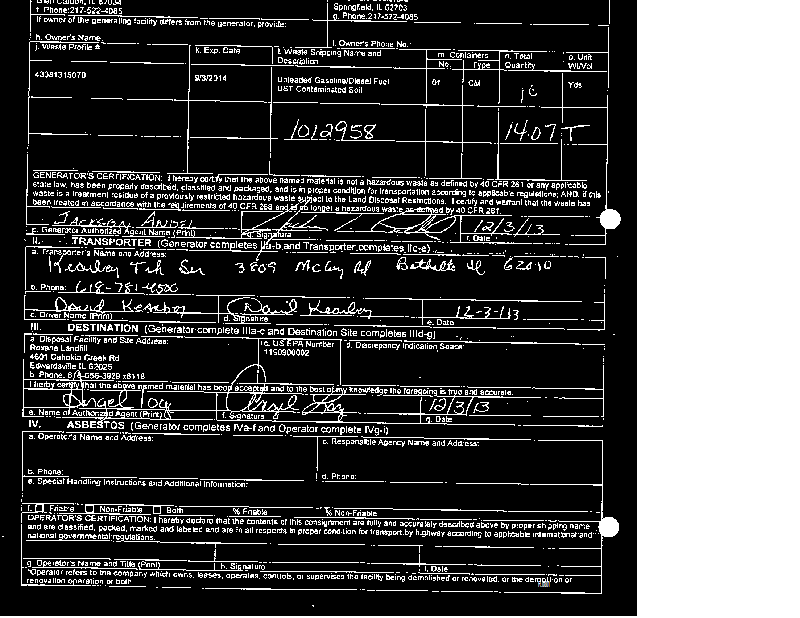 Glen Carbon, IL 62034
Springfield, IL 62703
f. Phone:217-522-4085
g. Phone:217-522-4085
If owner of the generating facility differs from the generator, provide:
h. Owner's Name:
i. Owner's Phone No.:
j. Waste Profile #
k. Exp. Date
l. Waste Shipping Name and Description
m. Containers
No. Type
n. Total Quantity
o. Unit Wt/Vol
43381315070
9/3/2014
Unleaded Gasoline/Diesel Fuel
UST Contaminated Soil
01
CM
Yds
1012958
14.07 T
GENERATOR'S CERTIFICATION: I hereby certify that the above named material is not a hazardous waste as defined by 40 CFR 261 or any applicable
state law, has been properly described, classified and packaged, and is in proper condition for transportation according to applicable regulations; AND, if this
waste is a treatment residue of a previously restricted hazardous waste subject to the Land Disposal Restrictions. I certify and warrant that the waste has
been treated in accordance with the requirements of 40 CFR 268 and is no longer a hazardous waste as defined by 40 CFR 261.
Jackson Andel
12/3/13
p. Generator Authorized Agent Name (Print)
q. Signature
r. Date
II. TRANSPORTER (Generator completes IIa-b and Transporter completes IIc-e)
a. Transporter's Name and Address:
3809 McCoy Rd
b. Phone: 618-781-4500
David Kearbey
David Kearbey
12-3-13
c. Driver Name (Print)
d. Signature
e. Date
III. DESTINATION (Generator complete IIIa-c and Destination Site completes IIId-g)
a. Disposal Facility and Site Address:
c. US EPA Number
d. Discrepancy Indication Space:
Roxana Landfill
1190900002
4601 Cahokia Creek Rd
Edwardsville IL 62025
b. Phone: 618-656-3929 x6118
I hereby certify that the above named material has been accepted and to the best of my knowledge the foregoing is true and accurate.
12/3/13
e. Name of Authorized Agent (Print)
f. Signature
g. Date
IV. ASBESTOS (Generator completes IVa-f and Operator complete IVg-i)
a. Operator's Name and Address:
c. Responsible Agency Name and Address:
b. Phone:
d. Phone:
e. Special Handling Instructions and Additional Information:
f. Friable Non-Friable Both % Friable % Non-Friable
OPERATOR'S CERTIFICATION: I hereby declare that the contents of this consignment are fully and accurately described above by proper shipping name
and are classified, packed, marked and labeled and are in all respects in proper condition for transport by highway according to applicable international and
national governmental regulations.
g. Operator's Name and Title (Print)
h. Signature
i. Date
*Operator refers to the company which owns, leases, operates, controls, or supervises the facility being demolished or renovated, or the demolition or
renovation operation or both